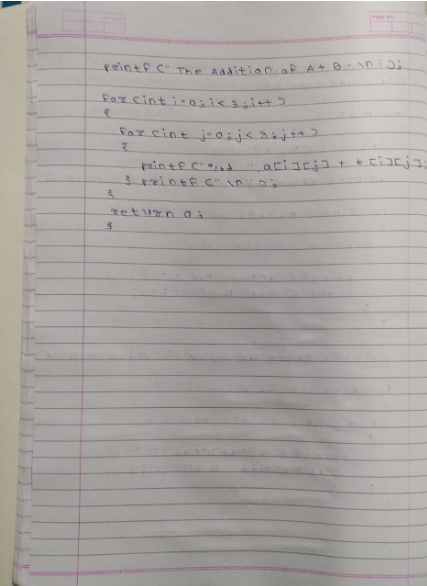 printf (" The Addition of A + B - \n");
for (int i=0; i< 3; i++ )
{
for (int j=0; j< 3; j++ )
{
printf ("%d ", a[i][j] + b [i][j];
} printf (" \n" );
}
return 0;
}